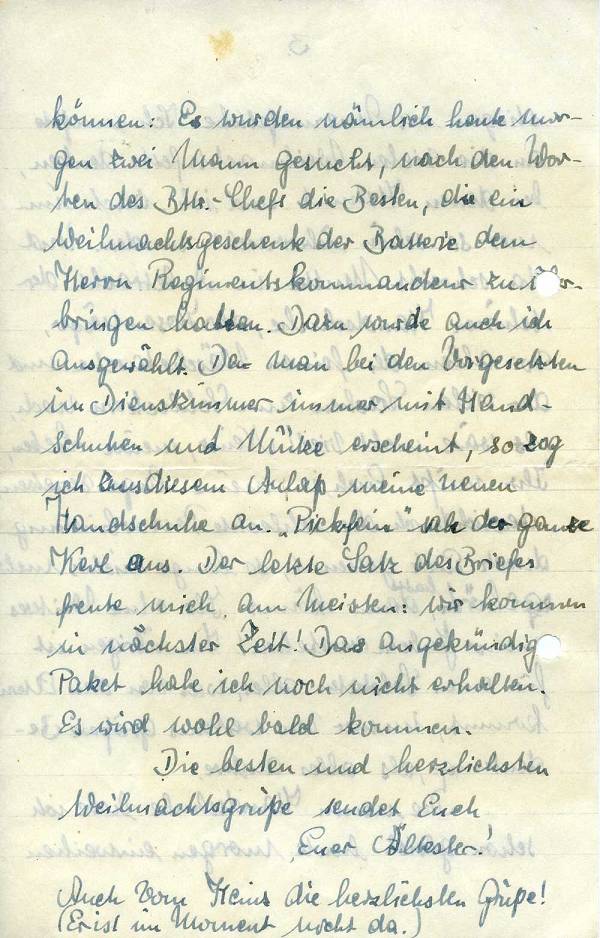 3.
können: Es wurden nämlich heute Mor-
gen zwei Mann gesucht, nach den Wor-
ten des Bttr.-Chefs die Besten, die ein
Weihnachtsgeschenk der Batterie dem
Herrn Regimentskommandeur zu
bringen hatten. Dazu wurde auch ich
ausgewählt. Da man bei den Vorgesetzten
im Dienstzimmer immer mit Hand-
schuhen und Mütze erscheint, so zog
ich aus diesem Anlaß meine neuen
Handschuhe an. „Pickfein" sah der ganze
Kerl aus. Der letzte Satz des Briefes
freute mich am Meisten: wir kommen
in nächster Zeit! Das angekündig
Paket habe ich noch nicht erhalten.
Es wird wohl bald kommen.
Die besten und herzlichsten
Weihnachtsgrüße sendet Euch
Euer Ältester!
Auch vom Heinz die herzlichsten Grüße!
(Er ist im Moment nicht da.)